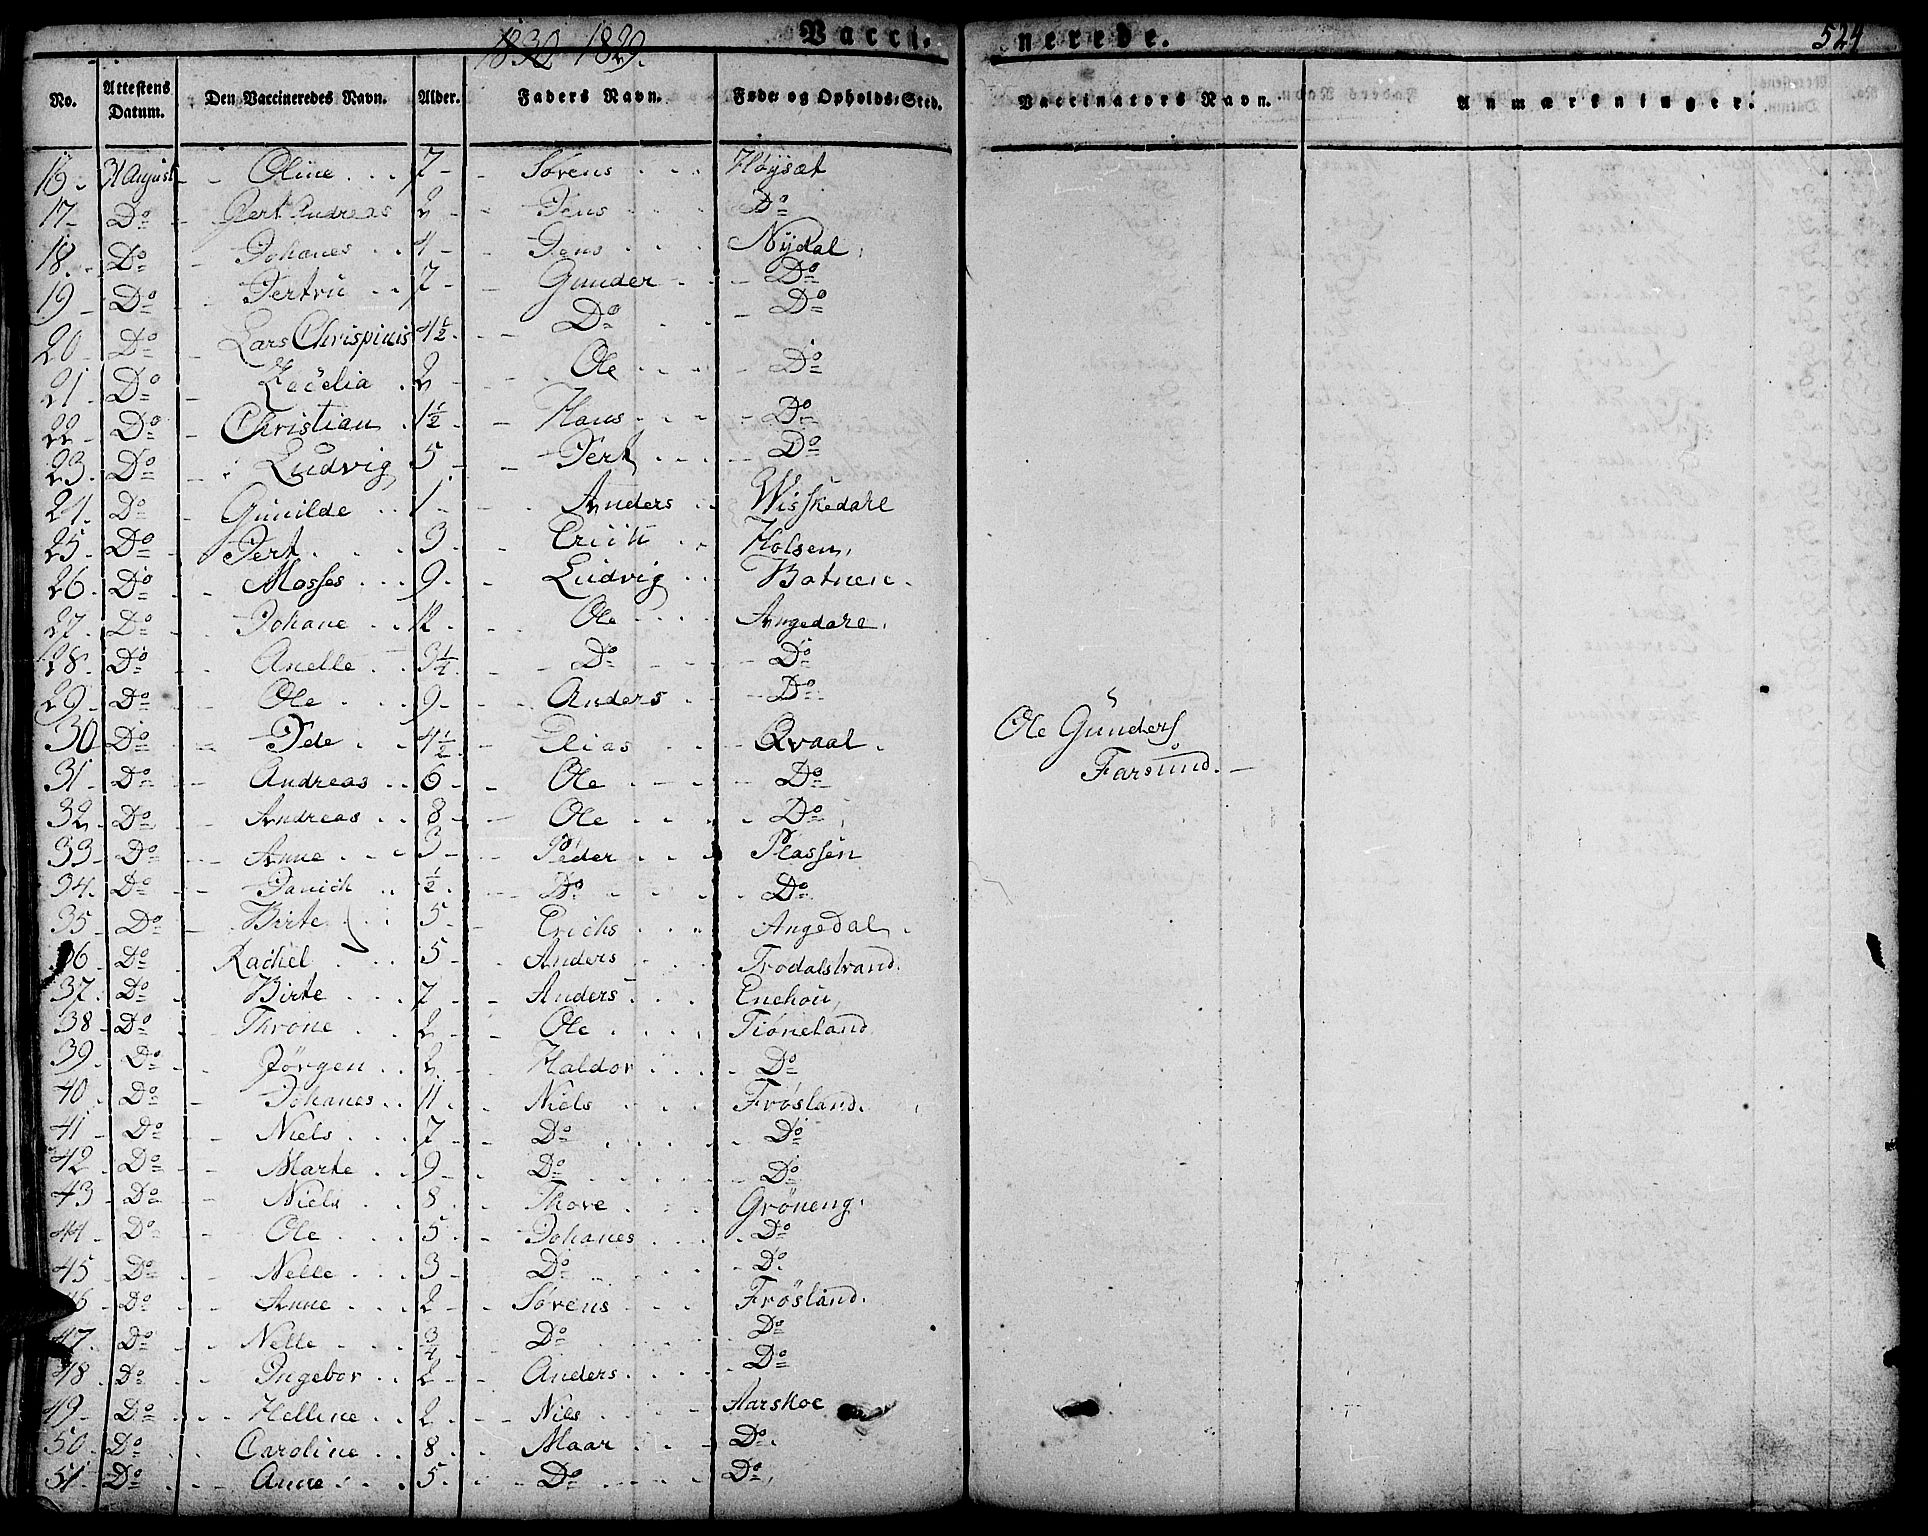 1830 1829. Vacci- nerede. 524
No. Attestens Datum. Den Vaccineredes Navn. Alder. Faders Navn. Føde og Opholds-Sted. Vaccinators Navn. Anmærkninger.
16. 31 August Oline 7 Sörens Höysæt
17 Do Gert Andreas 2 Jens Do
18. Do Johanes 4 Jens Nÿdal
19 Do Pertrü 7 Gunder Do
20 Do Lars Chrispinis 4 1/2 Do Do
21 Do 2 Ole Do
22 Do Christian 1 1/2 Hans Do
23. Do Ludvig 5 Pert Do
24. Do Gunilde 1 Anders Wisskedahl
25. Do Pert 3 Erich Holsen
26. Do Mosses 9 Ludvig Botnen
27. Do Johane 12 Ole Angedahl
28. Do Anelle 3 1/4 Do Do
29 Do Ole 9 Anders Do
30 Do Pede 4 1/2 Elias Qvaal
Ole Gunders
31. Do Andreas 6 Ole Do
Farsund.
32 Do Andreas 8 Ole Do
33 Do Anne 3 Peder Plassen
34. Do 1/2 Do Do
35 Do Birte 5 Erichs Angedal
36. Do Rachel 5 Anders Trodalstrand
37. Do Birte 7 Anders Enehöü
38 Do Throne 2 Ole Tiöneland
39. Do Jörgen 2 Haldor Do
40. Do Johanes 11 Niels Frösland.
41 Do Niels 7 Do Do
42 Do Marte 9 Do Do
43 Do Niels 8 Thore Gröneng
44 Do Ole 5 Johanes Do
45 Do Nelle 3 Do Do
46 Do Anne 2 Sörens Frösland.
47. Do Nelle 3/4 Do Do
48 Do Ingebor 2 Anders Do
49 Do Helline 2 Niels Aarskoe
50 Do Caroline 8 Maar Do
51 Do Anne 5 Do Do